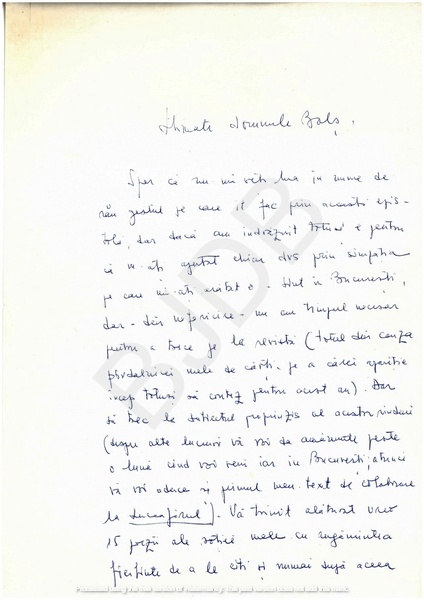 Stimate Domnule Balș,
Sper că nu-mi veți lua în nume de
rău gestul pe care îl fac prin această epis-
tolă, dar dacă am îndrăznit totuși e pentru
că m-ați ajutat chiar dvs prin simpatia
pe care mi-ați arătat-o. Fiind în București,
dar - din nefericire - nu am timpul necesar
pentru a trece pe la revistă (totul din cauza
păcătoasei mele de cărți pe a cărei apariție
încep totuși să contez pentru acest an). Dar
să trec la subiectul propriuzis al acestor rînduri
(despre alte lucruri vă voi da amănunte peste
o lună cînd voi veni iar în București, atunci
vă voi aduce și primul meu text de colaborare
la Luceafărul). - Vă trimit alăturat vreo
15 poezii ale soției mele cu rugămintea
fierbinte de a le citi și numai după aceea
BJDB